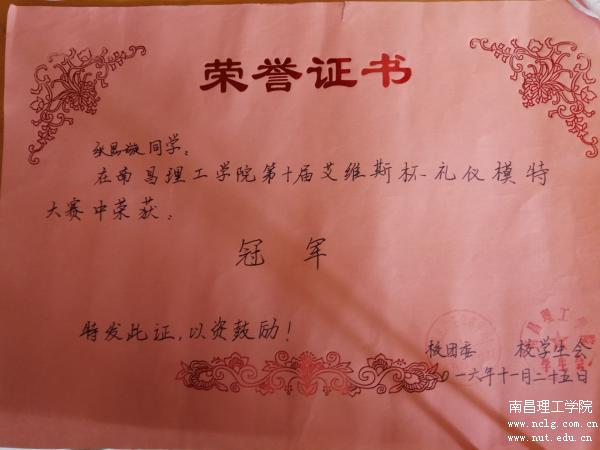 荣誉证书
同学:
在南昌理工学院第十届艾维斯杯礼仪模特
大赛中荣获:
冠军
特发此证,以资鼓励!
校团委 校学生会
二〇一六年十一月二十五日
南昌理工学院
www.nclg.com.cn
www.nut.edu.cn